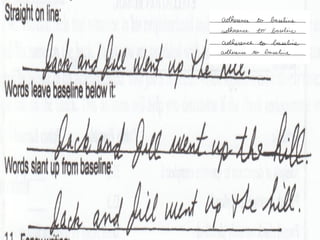 Straight on line:
adherence to baseline
adherence to baseline
adherence to baseline
adherence to baseline
Jack and Jill went up the
Words leave baseline below it:
Jack and Jill went up the hill.
Words slant up from baseline:
Jack and Jill went up the hill.
11.